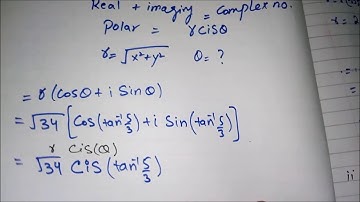 Real + imaging = Complex no.
Polar = rcisθ
r = √x²+y²   θ = ?
= r (cosθ + i Sinθ)
= √34 [Cos(tan⁻¹ 5/3) + i Sin(tan⁻¹ 5/3)]
r Cis(θ)
= √34 Cis (tan⁻¹ 5/3)
ii